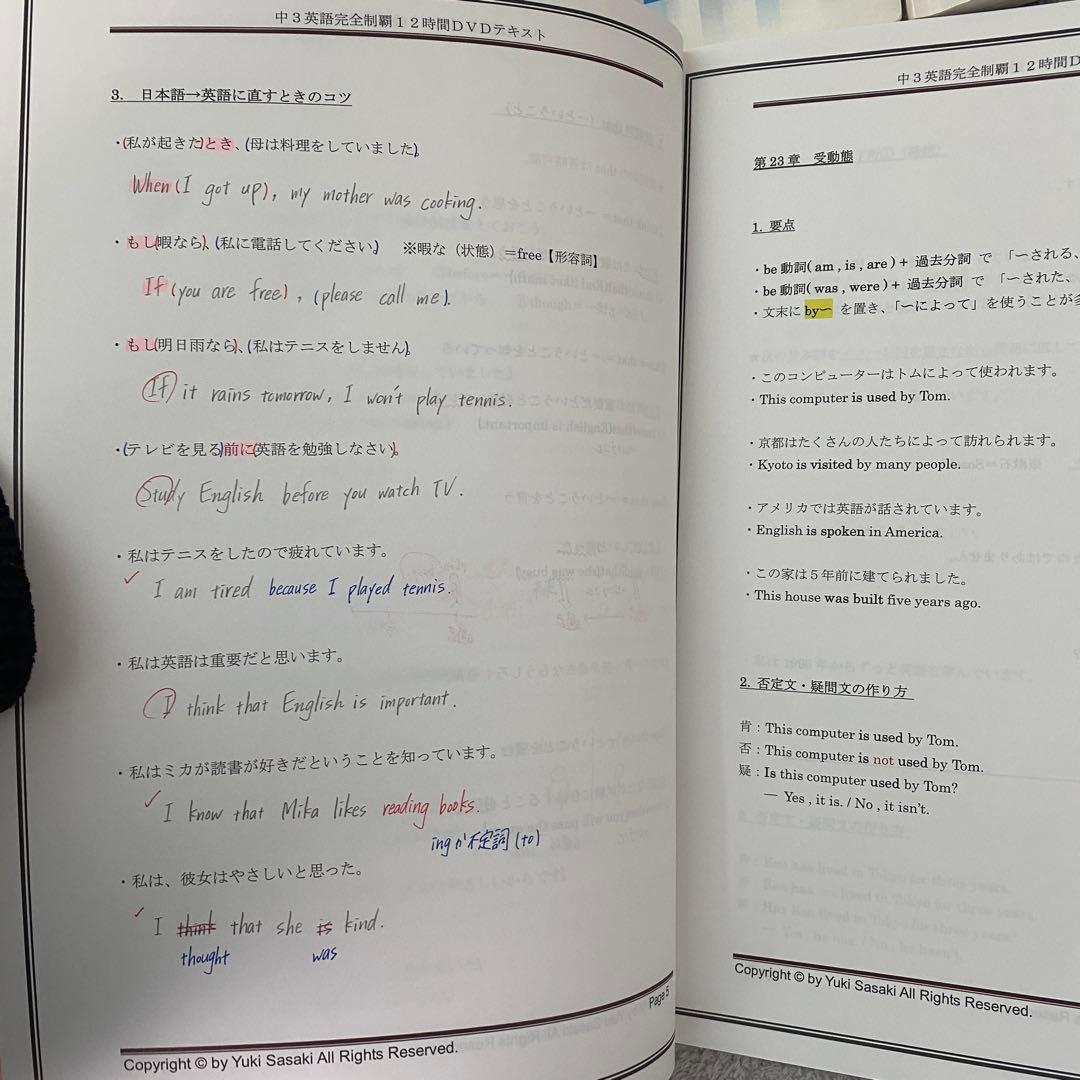 中３英語完全制覇１２時間ＤＶＤテキスト
3. 日本語→英語に直すときのコツ
・(私が起きた)とき、(母は料理をしていました)。
When (I got up), my mother was cooking.
・もし(暇なら)、(私に電話してください)。 ※暇な（状態）＝free【形容詞】
If (you are free), (please call me).
・もし(明日雨なら)、(私はテニスをしません)。
If it rains tomorrow, I won't play tennis.
・(テレビを見る)前に(英語を勉強しなさい)。
Study English before you watch TV.
・私はテニスをしたので疲れています。
✓ I am tired because I played tennis.
・私は英語は重要だと思います。
I think that English is important.
・私はミカが読書が好きだということを知っています。
✓ I know that Mika likes reading books.
ing か不定詞 (to)
・私は、彼女はやさしいと思った。
✓ I think that she is kind.
thought was
Page 5
Copyright © by Yuki Sasaki All Rights Reserved.
中３英語完全制覇１２時間Ｄ
第 23 章 受動態
1. 要点
・be 動詞( am , is , are ) + 過去分詞 で 「ーされる、
・be 動詞( was , were ) + 過去分詞 で 「ーされた、
・文末に byー を置き、「ーによって」を使うことが
・このコンピューターはトムによって使われます。
・This computer is used by Tom.
・京都はたくさんの人たちによって訪れられます。
・Kyoto is visited by many people.
・アメリカでは英語が話されています。
・English is spoken in America.
・この家は５年前に建てられました。
・This house was built five years ago.
2. 否定文・疑問文の作り方
肯：This computer is used by Tom.
否：This computer is not used by Tom.
疑：Is this computer used by Tom?
― Yes , it is. / No , it isn't.
Copyright © by Yuki Sasaki All Rights Reserved.